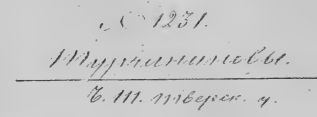 № 1231.
Турчаниновы.
Ч. III. тверск. ч.